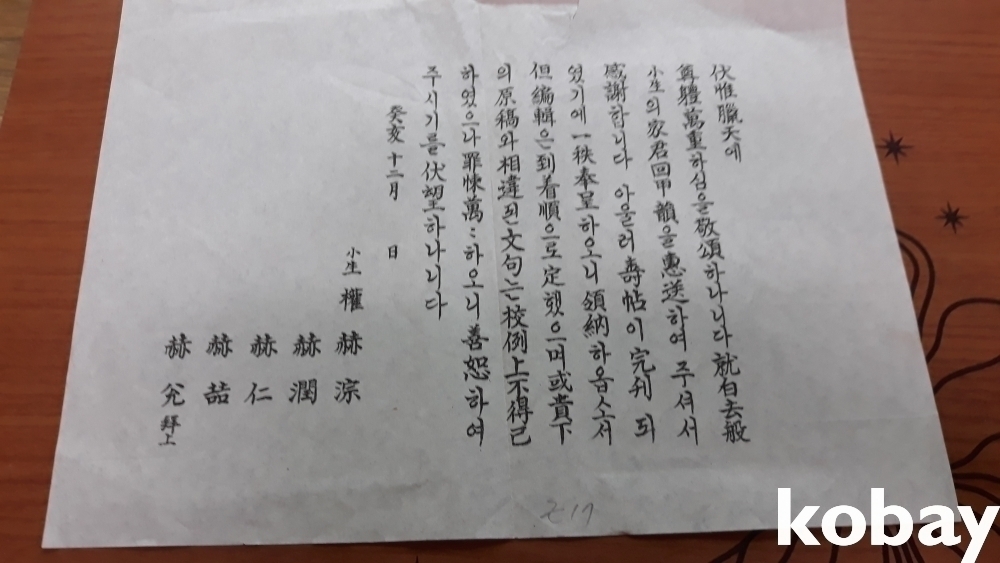 伏惟臘天에
尊體萬重하심을敬頌하나니다就白去般
小生의家君回甲韻을惠送하여주셔서
感謝합니다 아울러壽帖이完刊되
였기에一秩奉呈하오니領納하옵소서
但編輯은到着順으로定했으며或貴下
의原稿와相違된文句는校例上不得已
하였으나罪悚萬:하오니善恕하여
주시기를伏望하나니다
癸亥十二月 日
小生 權 赫淙
赫潤
赫仁
赫喆
赫兊拜上
kobay